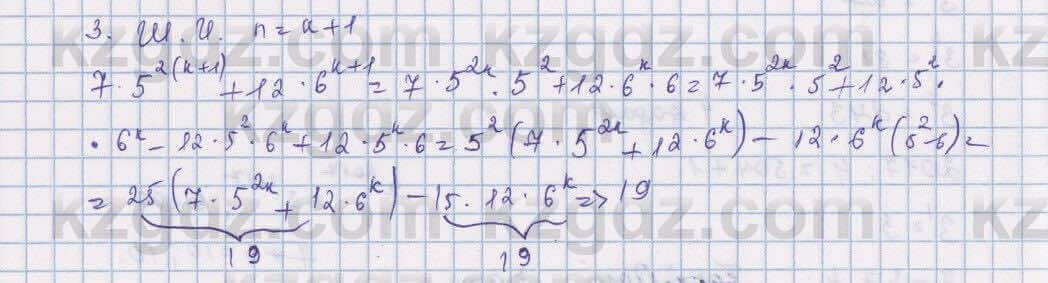 3. Ш.И. n = k+1
7 · 5^{2(k+1)} + 12 · 6^{k+1} = 7 · 5^{2k} · 5^2 + 12 · 6^k · 6 = 7 · 5^{2k} · 5^2 + 12 · 5^2 ·
· 6^k - 12 · 5^2 · 6^k + 12 · 5^k · 6 = 5^2 (7 · 5^{2k} + 12 · 6^k) - 12 · 6^k (5^2-6) =
= 25 (7 · 5^{2k} + 12 · 6^k) - 15 · 12 · 6^k => 19
19 19
kzgdz.com